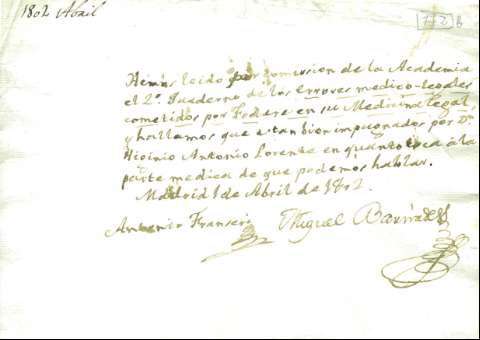 1802 Abril
Hemos leido por comision de la Academia
el 2º. Quaderno de los errores medico-legales
cometidos por Federe en su Medicina legal,
y hallamos que estan bien impugnados por Dn.
Higinio Antonio Lorente en quanto toca á la
parte medica de que podemos hablar.
Madrid 1 de Abril de 1802.
Antonio Franseri Miguel Barnades